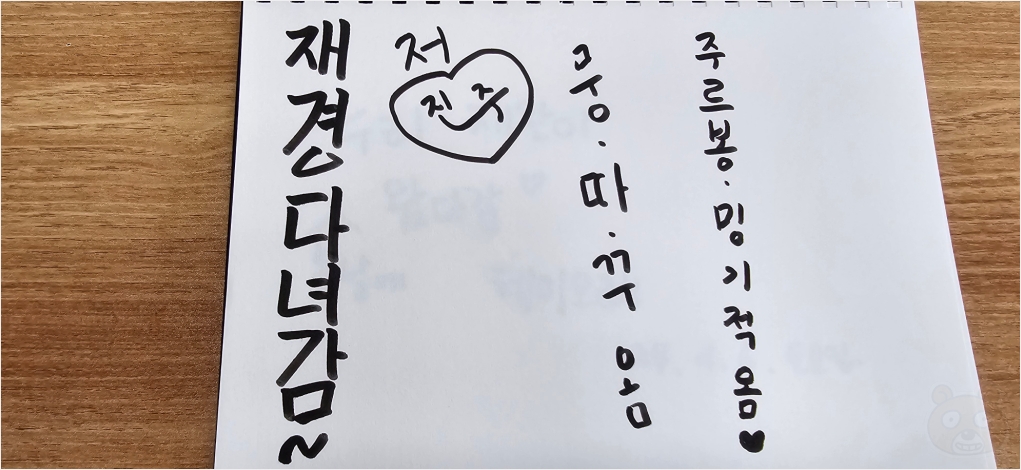 재경다녀감~
저
진주
쿵·따·꾸 옴
주르봉·밍기적 옴♥